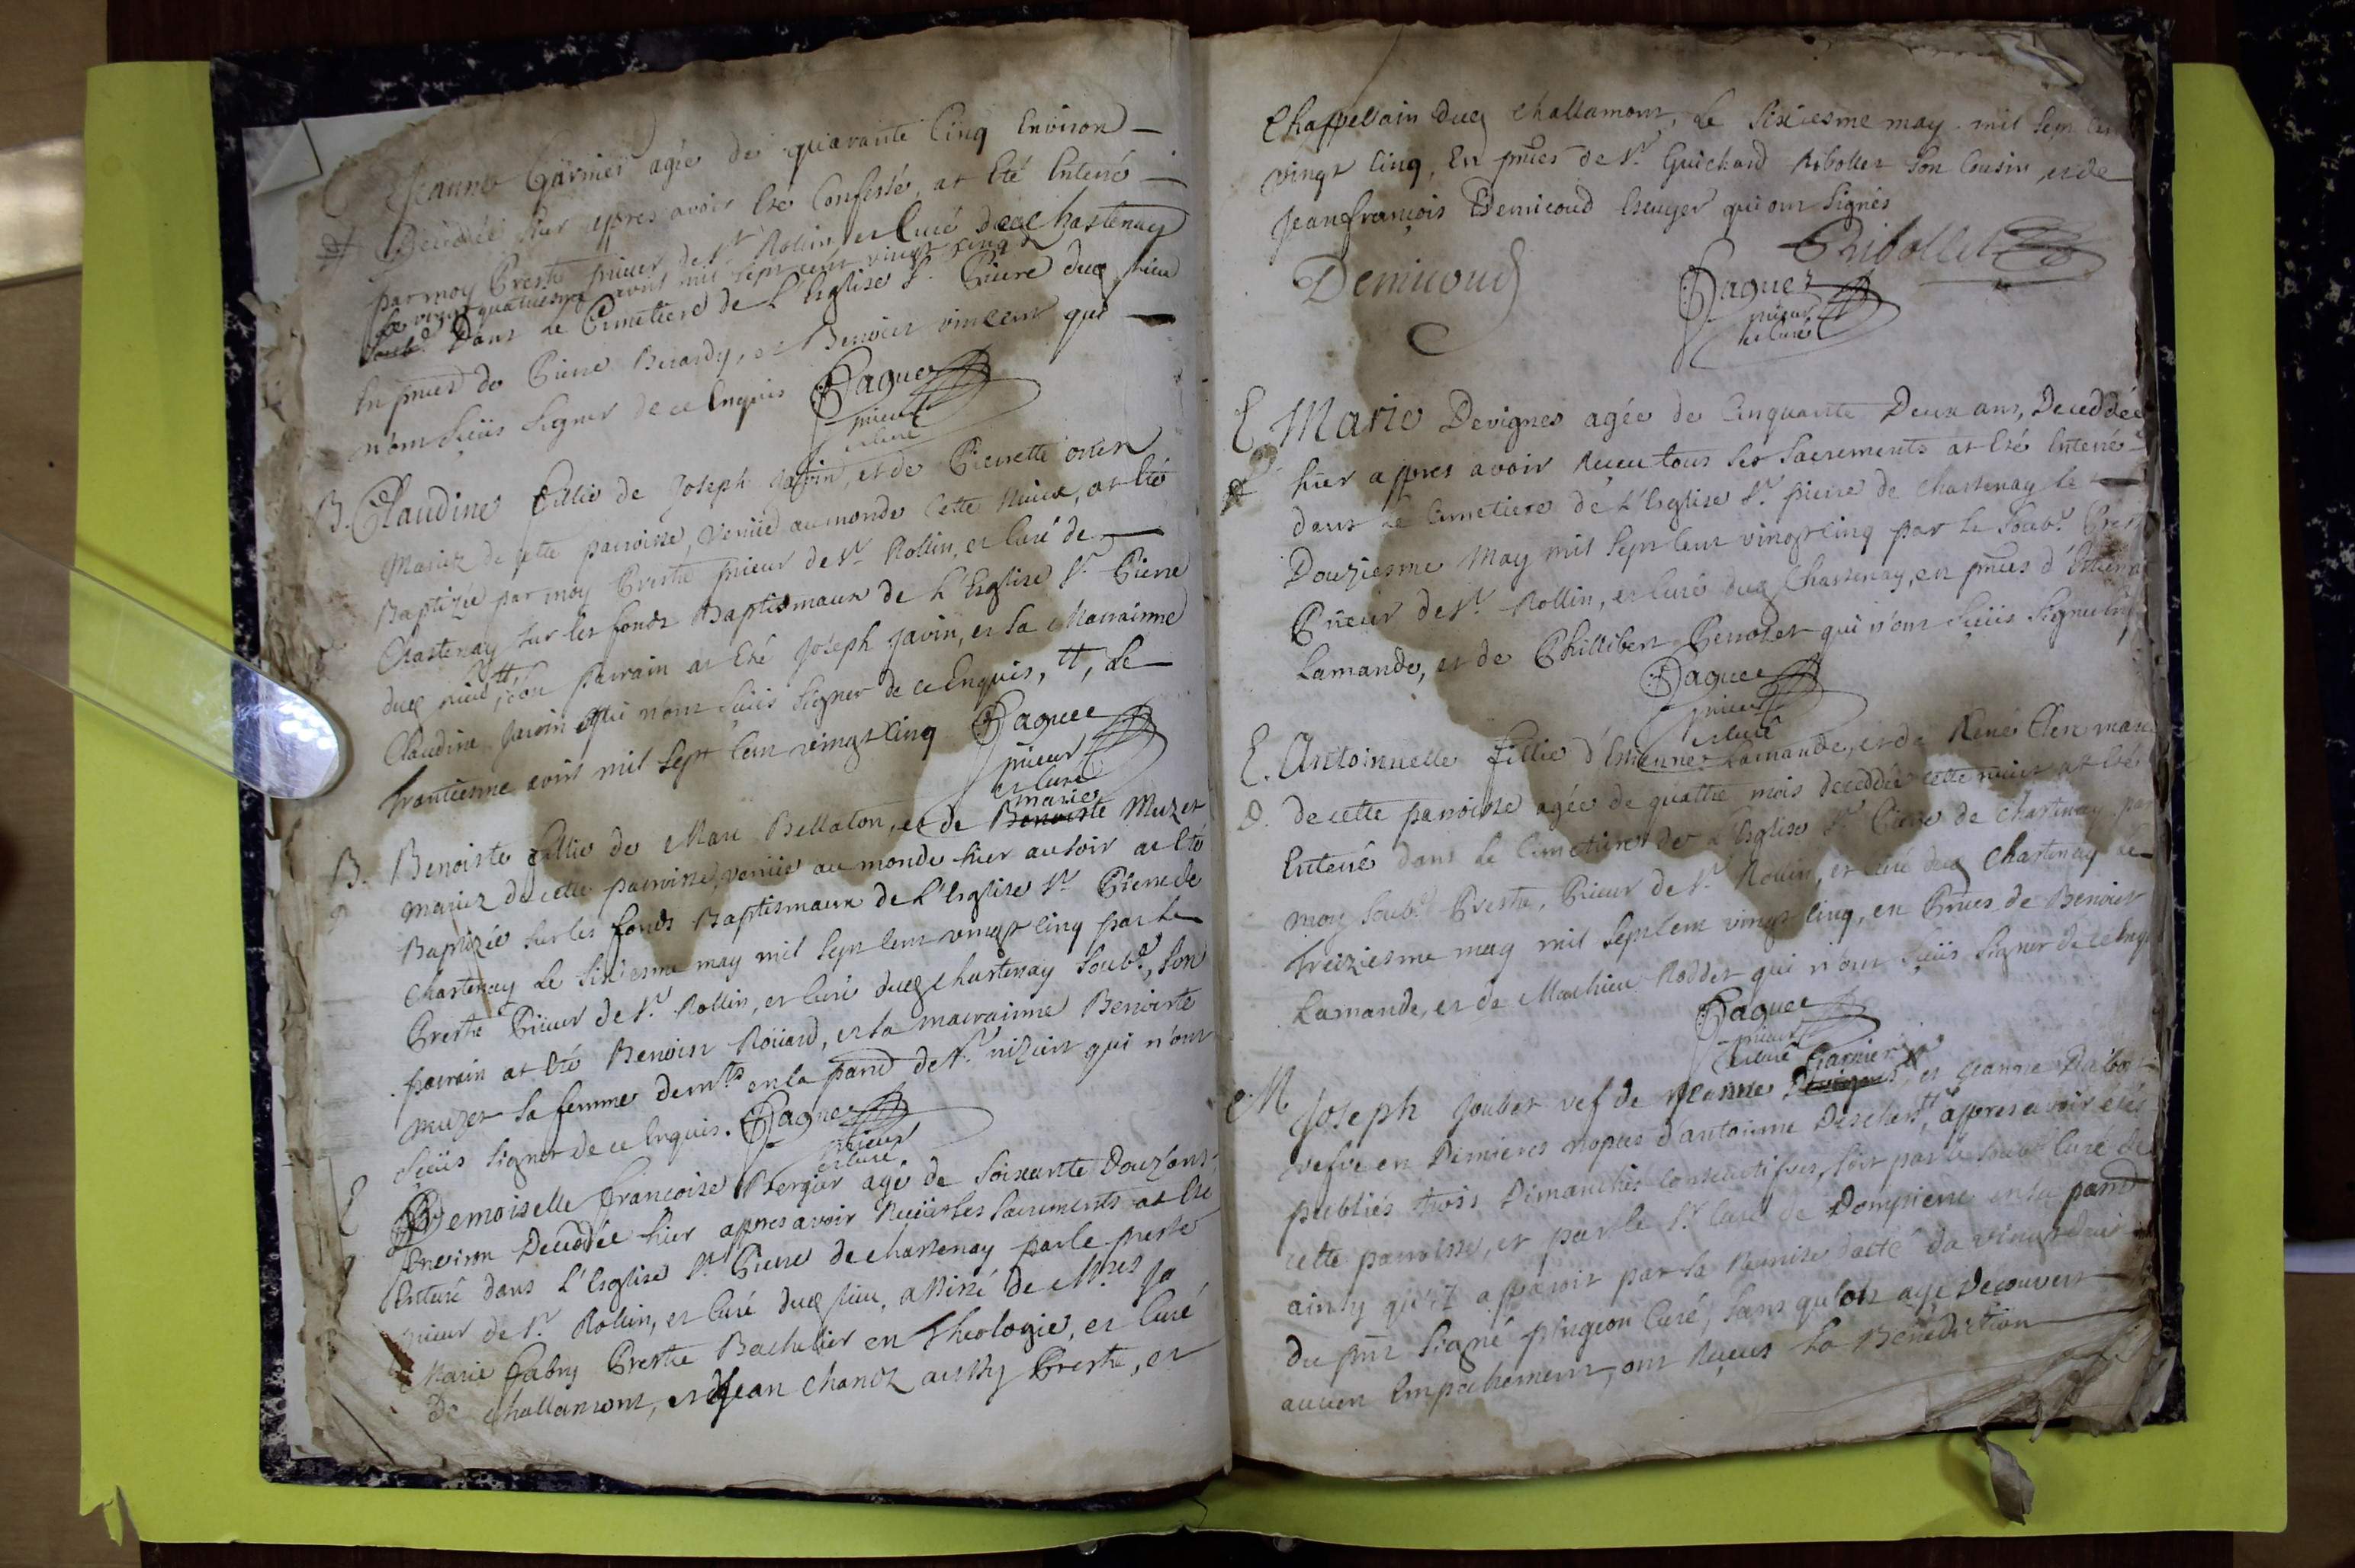 Jeanne Garnier agée de quarante Cinq Environ
Decedée hier appres avoir Esté Confessée, at Eté Enterré
par moy Prestre prieur de St. Rollin, et Curé dud Chastenay
Le vingt quatriesme avril mil sept cent vingt cinq
Soubs. Dans Le Cimetiere de L'Eglise St. Pierre dud lieu
En pnces de Pierre Berardy, et Benoict vincent qui
n'ont sçeüs signer de ce Enquis Paquet
prieur
et curé
B. Claudine fillie de Joseph Javin, et de Pierrette
Mariez de cette parroisse, venüe au monde Cette Nuict, at Eté
Baptizée par moy Prestre prieur de St. Rollin, et Curé de
Chastenay sur les fonds Baptismaux de L'Esglise St. Pierre
dud lieu, son parrain at Eté Joseph Javin, et Sa Marrainne
Claudine Javin qui n'ont sçeüs signer de ce Enquis, tt, Le
trantiesme avril mil sept Cent vingt Cinq Paquet
prieur
et curé
marie
B. Benoiste fillie de Marc Bellaton, et de Benoiste Muzet
mariez de cette parroisse, venüe au monde hier au soir at Eté
Baptizée sur les fonds Baptismaux de L'Esglise St. Pierre de
Chastenay Le Sixiesme may mil sept Cent vingt Cinq par Le
Prestre Prieur de St. Rollin, et Curé dud Chastenay Soubs., Son
parrain at Eté Benoist Roüard, et Sa marrainne Benoiste
muzet sa femme demts. en la parré de St. nizier qui n'ont
sçeüs signer de ce Enquis. Paquet
prieur
et curé
E Demoiselle francoise Bergier agé de Soixante Douz ans
Environ Decedée hier appres avoir Reçeüs Les Sacrements at Eté
Enterré dans L'Esglise St. Pierre de chastenay par le prestre
prieur de St. Rollin, et Curé dud lieu, assisté de Mres. Jo
Marie fabry Prestre Bachelier en Theologie, et Curé
De Challamont, et Jean Chanoz aussy Prestre, et
Chappellain dud Challamont, Le Sixiesme may mil sept Cent
vingt Cinq, En pnces de Sr. Guichard Ribollet Son Cousin, et de
Jean françois Demicoud Escuyer qui ont Signés
Demicoud
Ribollet
Paquet
prieur
et Curé
E. Marie Devignes agée de Cinquante Deux ans, Deceddée
hier appres avoir Reçeu tous Ses Sacrements at Eté Enterré
dans Le Cimetiere de L'Esglise St. pierre de Chastenay Le
Douziesme May mil Sept Cent vingt Cinq par Le Soubs. Prest
Prieur de St. Rollin, et Curé dud Chastenay, en pnces d'Estienne
Lamande, et de Phillibert Benoset qui n'ont Sçeüs Signer
Paquet
prieur
et curé
E. Antoinnelle fillie d'Estienne Lamande, et de René Clere
D. de cette parroisse agée de quattre mois deceddée cette nuict at Eté
Enterré dans Le Cimetiere de L'Esglise St. Pierre de Chastenay par
moy Soubs. Prestre, Prieur de St. Rollin, et Curé dud Chastenay Le
Treiziesme may mil Sept Cent vingt Cinq, en Pnces de Benoist
Lamande, et de Mathieu Roddet qui n'ont Sçeüs Signer de ce
Paquet
prieur
et curé
Garnier
M Joseph Joubet vef de Jeanne Devignes, et Jeanne
vefve en Dernieres nopces d'antoinne Desclers, appres avoir etés
publiés trois Dimanches Consecutifves, Soit par Le Curé de
cette parroisse, et par le Sr. Curé de Dompierre en Sa parré
ainsy qu'il apparoit par La Remise dacté du vingt
du pnt Signé pingeon Curé, Sans qu'on aye Decouvert
aucun Empechement, ont Reçeus La Bénédiction